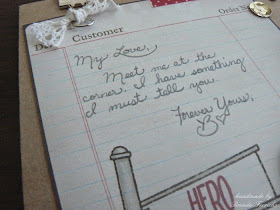 Customer
Order
My Love,
Meet me at the
corner. I have something
I must tell you.
Forever Yours,
B
HERO
handmade by